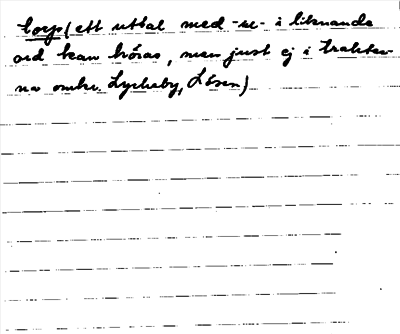 torp (ett uttal med -re- i liknande
ord kan höras, men just ej i trakter-
na omkr. Lyckeby, Lösen)